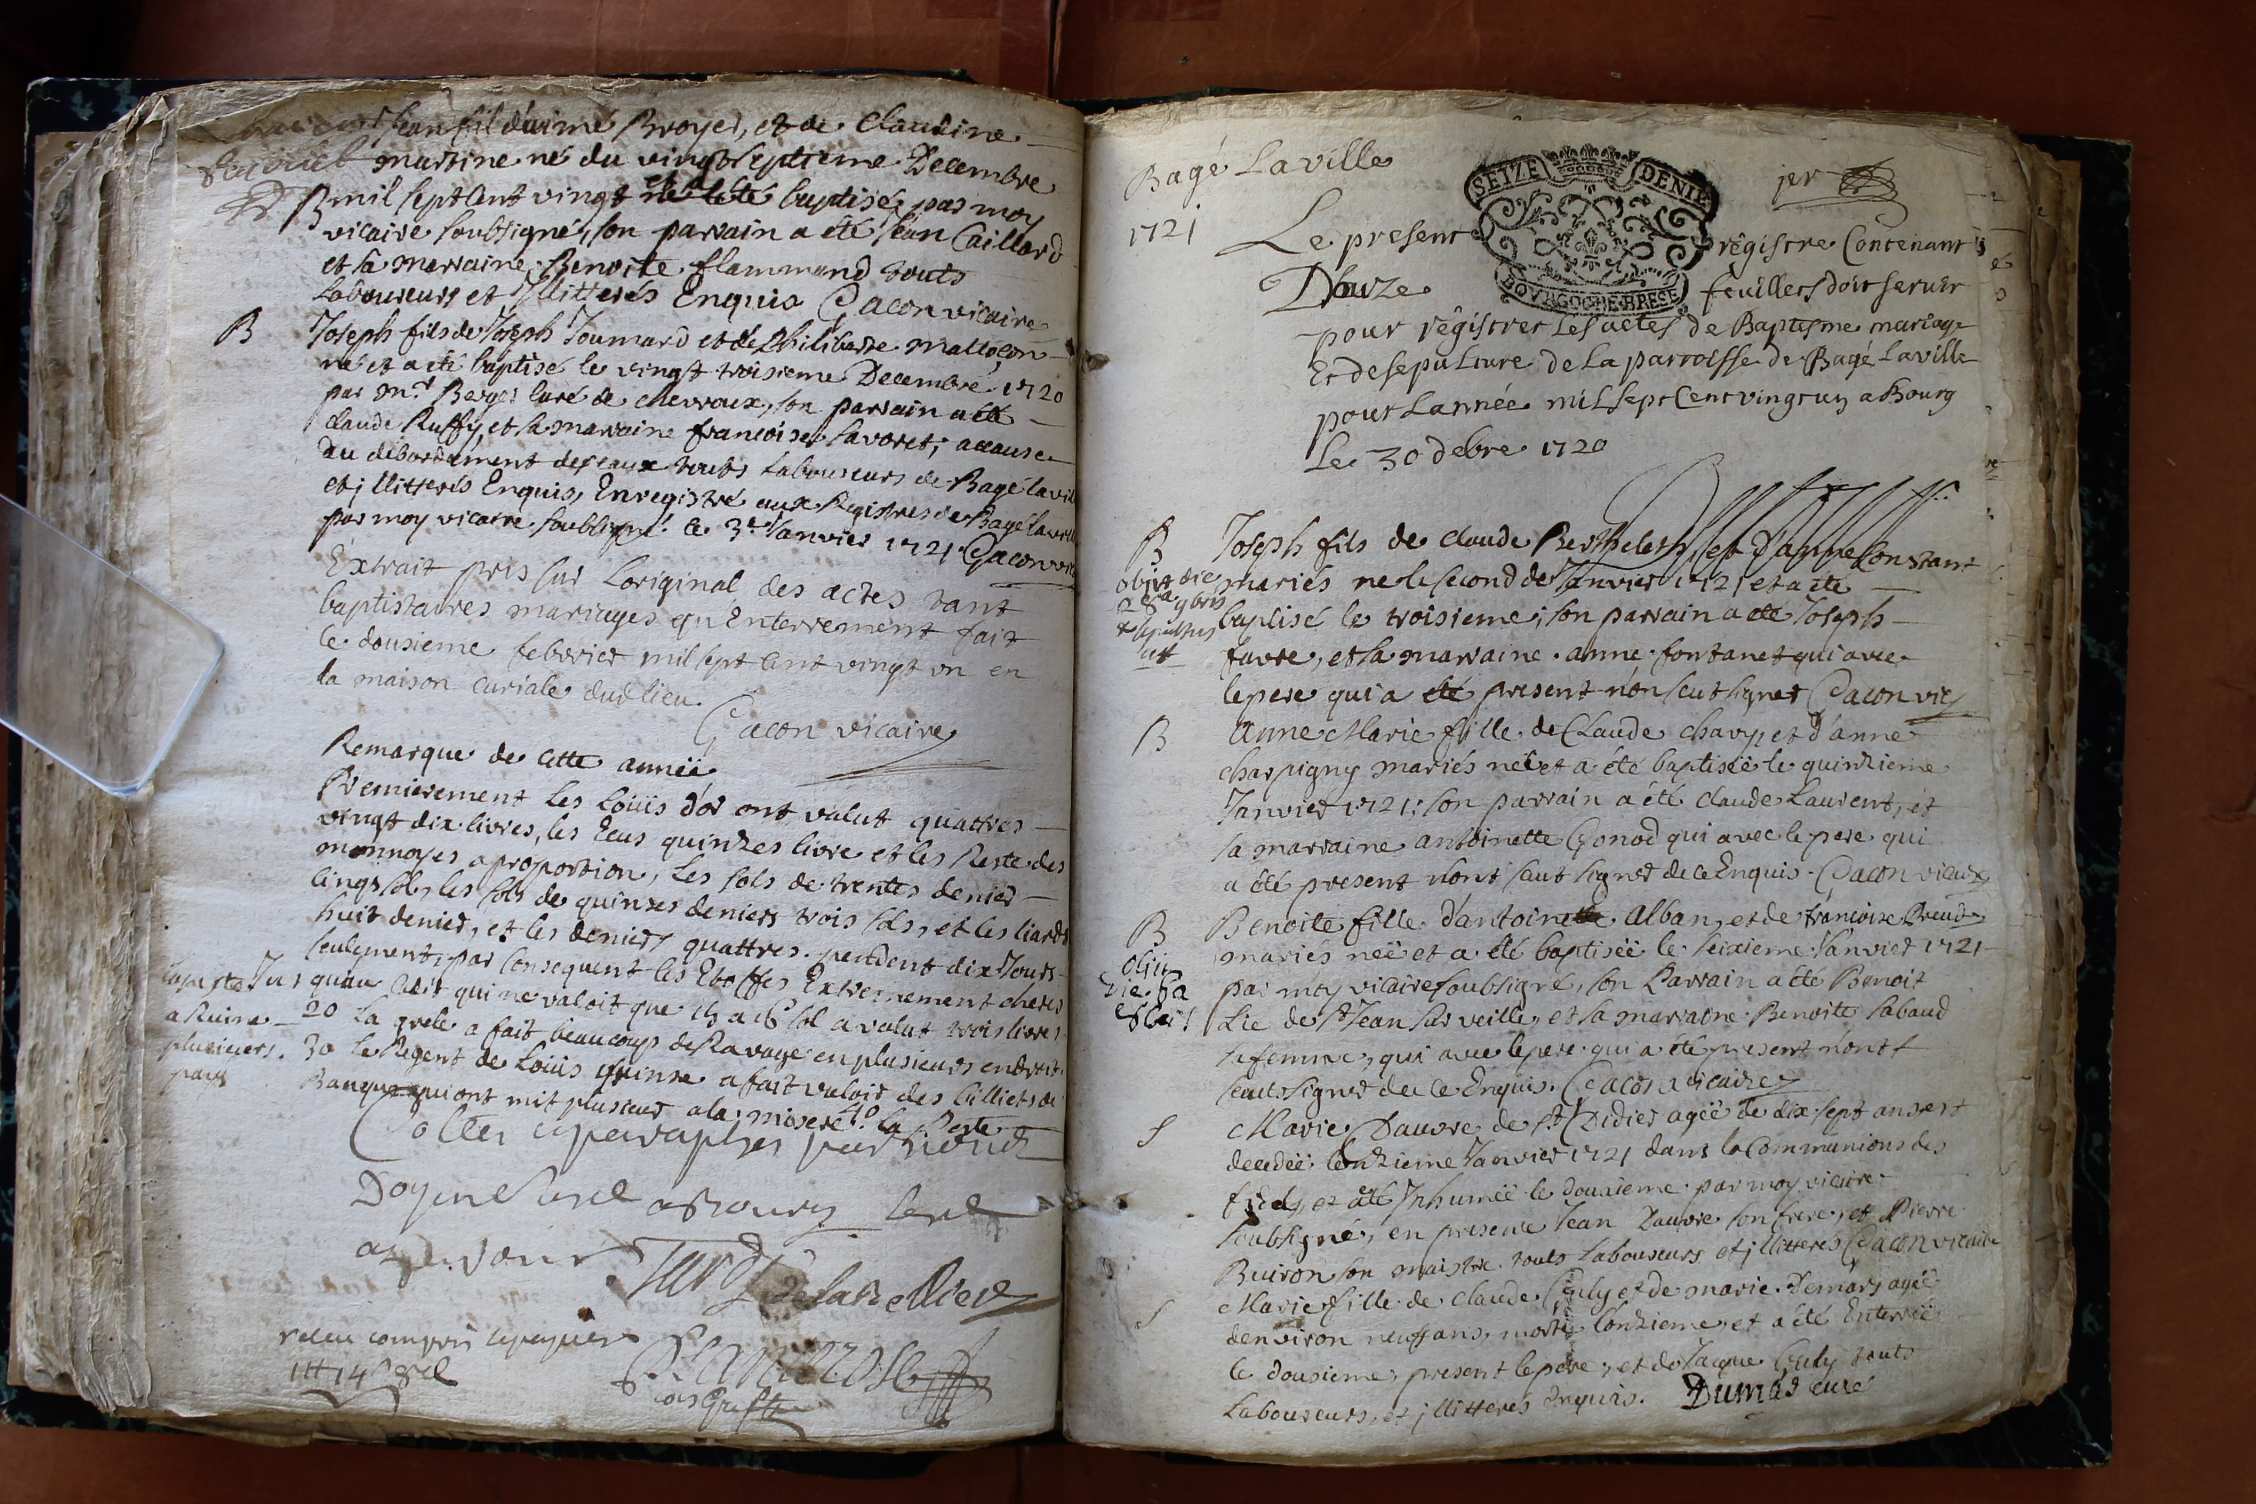 Jean fil d'aimé Broyer, et de Claudine
martine né du vingt septieme Decembre
B mil sept cent vingt et a été baptisé, par moy
vicaire soubsigné, son parrain a été Jean Caillard
et sa marraine Benoite flammand touts
Laboureurs et Jllitterés Enquis Gacon vicaire
B Joseph fils de Joseph Joumard et de Philiberte mattocon
né et a été baptisé le vingt troisieme Decembre 1720
par Mr. Berger curé de chevroux, son parrain a été
claude Ruffy, et sa marraine francoise Lavoret, acause
du débordement des eaux touts Laboureurs de Bagé la vill
et jllitterés Enquis, Enregistré aux Registres de Bagé la ville
par moy vicaire soubsigné. le 3e. Janvier 1721. Gacon vic
Extrait pris sur Loriginal des actes tant
baptistaires mariages qu'Enterrement fait
le dousieme febvrier mil sept cent vingt un en
la maison curiale dud lieu.
Gacon vicaire
Remarque de cette anneë
Premierement Les Loüis d'or ont valut quattres
vingt dix livres, les Ecus quinzes livre et les Reste des
monnoyes a proportion, Les sols de trentes denier
cinqs sols, les sols de quinzes deniers trois sols, et les liards
huit denier, et les deniers quattres. pendent dix Jours
seulement, par consequent les Etoffes Extremement cheres
qui ne valoit que 15 a 16 sol a valut trois livres
20 La grele a fait beaucoups de Ravage en plusieurs endroit
30 le Regent de Loüis quinse a fait valoir des billiets de
Banque qui ont mit plusieur a la misere 4o. la Peste
a Ruiné
plusieurs
pays
Cottes et paraphes par nous
a Bourg
receu compris le papier
Bagé La ville
1721
SEIZE DENIE
BOURGOGNE BRESE
jer
Le present régistre Contenant
Douze feuillets doit servir
pour régistrer Les actes de Baptesme mariage
Et de sepulture de La parroisse de Bagé Laville
pour Lannée mil sept Cent vingt un a Bourg
Le 30 debre 1720
B Joseph fils de claude Berthelets, et d'anne Constant
mariés né le second de Janvier 1721 et a été
baptisé le troisieme, son parrain a été Joseph
favre, et sa marraine anne fontanet qui avec
le pere qui a été present n'on seut signer Gacon vic
obiit die
28a 9bris
sepultus
est
B Anne Marie fille de Claude chavy, et d'anne
charpigny mariés neë et a été baptiseë le quinzieme
Janvier 1721; son parrain a été claude Laurent, et
sa marraine antoinette Gonod qui avec le pere qui
a été present n'ont saut signer de ce Enquis. Gacon vicaire
B Benoite fille d'antoine Alban, et de francoise
mariés neë et a été baptiseë le seizieme Janvier 1721
par moy vicaire soubsigné, son Parrain a été Benoit
Lie de st Jean sur veille, et sa marraine Benoite Sabaud
sa femme, qui avec le pere qui a été present n'ont
seut signer de ce Enquis. Gacon vicaire
S Marie Dauvre de st Didier ageë de dix sept ans est
decedeë l'onzieme Janvier 1721 dans la Communions des
fidels, et a été Inhumeë le douzieme par moy vicaire
soubsigné, en presence Jean Dauvre son frere, et Pierre
Buiron son maistre touts Laboureurs et jllitteres Gacon vicaire
S Marie fille de claude Guly et de marie Demars ageë
denviron neuf ans, morte l'onzieme, et a été Enterreë
le dousieme, present le pere, et de Jaque Guly touts
Laboureurs, et jllitteres Enquis. Dumas curé